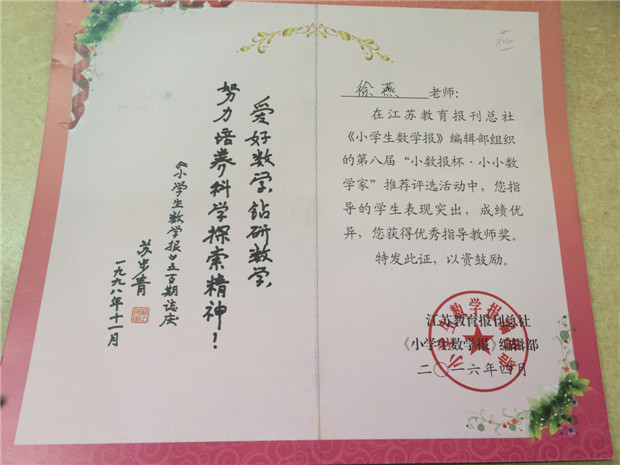 爱好数学,钻研数学
努力培养科学探索精神!
《小学生数学报》五百期誌庆
苏步青
一九九八年十一月
徐燕 老师:
在江苏教育报刊总社
《小学生数学报》编辑部组织
的第八届“小数报杯·小小数
学家”推荐评选活动中,您指
导的学生表现突出,成绩优
异,您获得优秀指导教师奖。
特发此证,以资鼓励。
江苏教育报刊总社
《小学生数学报》编辑部
二〇一六年四月
小学生数学报编辑部